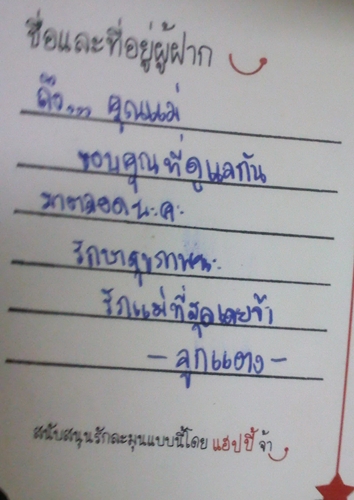 ชื่อและที่อยู่ผู้ฝาก
ถึง... คุณแม่
ขอบคุณที่ดูแลกัน
มาตลอดนะคะ
รักษาสุขภาพนะ
รักแม่ที่สุดเลยจ้า
- ลูกแตง -
สนับสนุนรักละมุนแบบนี้โดย แฮปปี้ จ้า